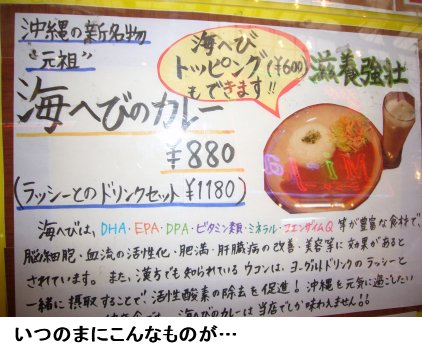 沖縄の新名物
"元祖"
海へびのカレー
¥880
(ラッシーとのドリンクセット ¥1180)
海へび
トッピング(¥600)
もできます!!
滋養強壮
海へびは、DHA・EPA・DPA・ビタミン類・ミネラル・コエンザイムQ 等が豊富な食材で
脳細胞・血流の活性化・肥満・肝臓病の改善・美容等に効果があると
されています。また、漢方でも知られているウコンは、ヨーグルトドリンクのラッシーと
一緒に摂取することで、活性酸素の除去を促進!沖縄を元気に過ごしたい
海へびのカレーは当店でしか味わえません!!
いつのまにこんなものが…